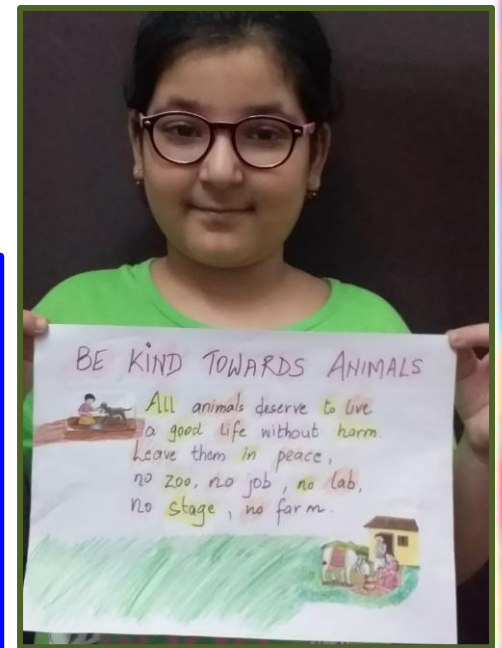 BE KIND TOWARDS ANIMALS
All animals deserve to live
a good life without harm.
Leave them in peace,
no zoo, no job, no lab,
no stage, no farm.